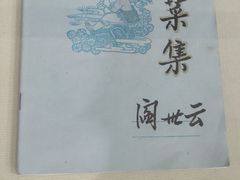 菜集
阎世云